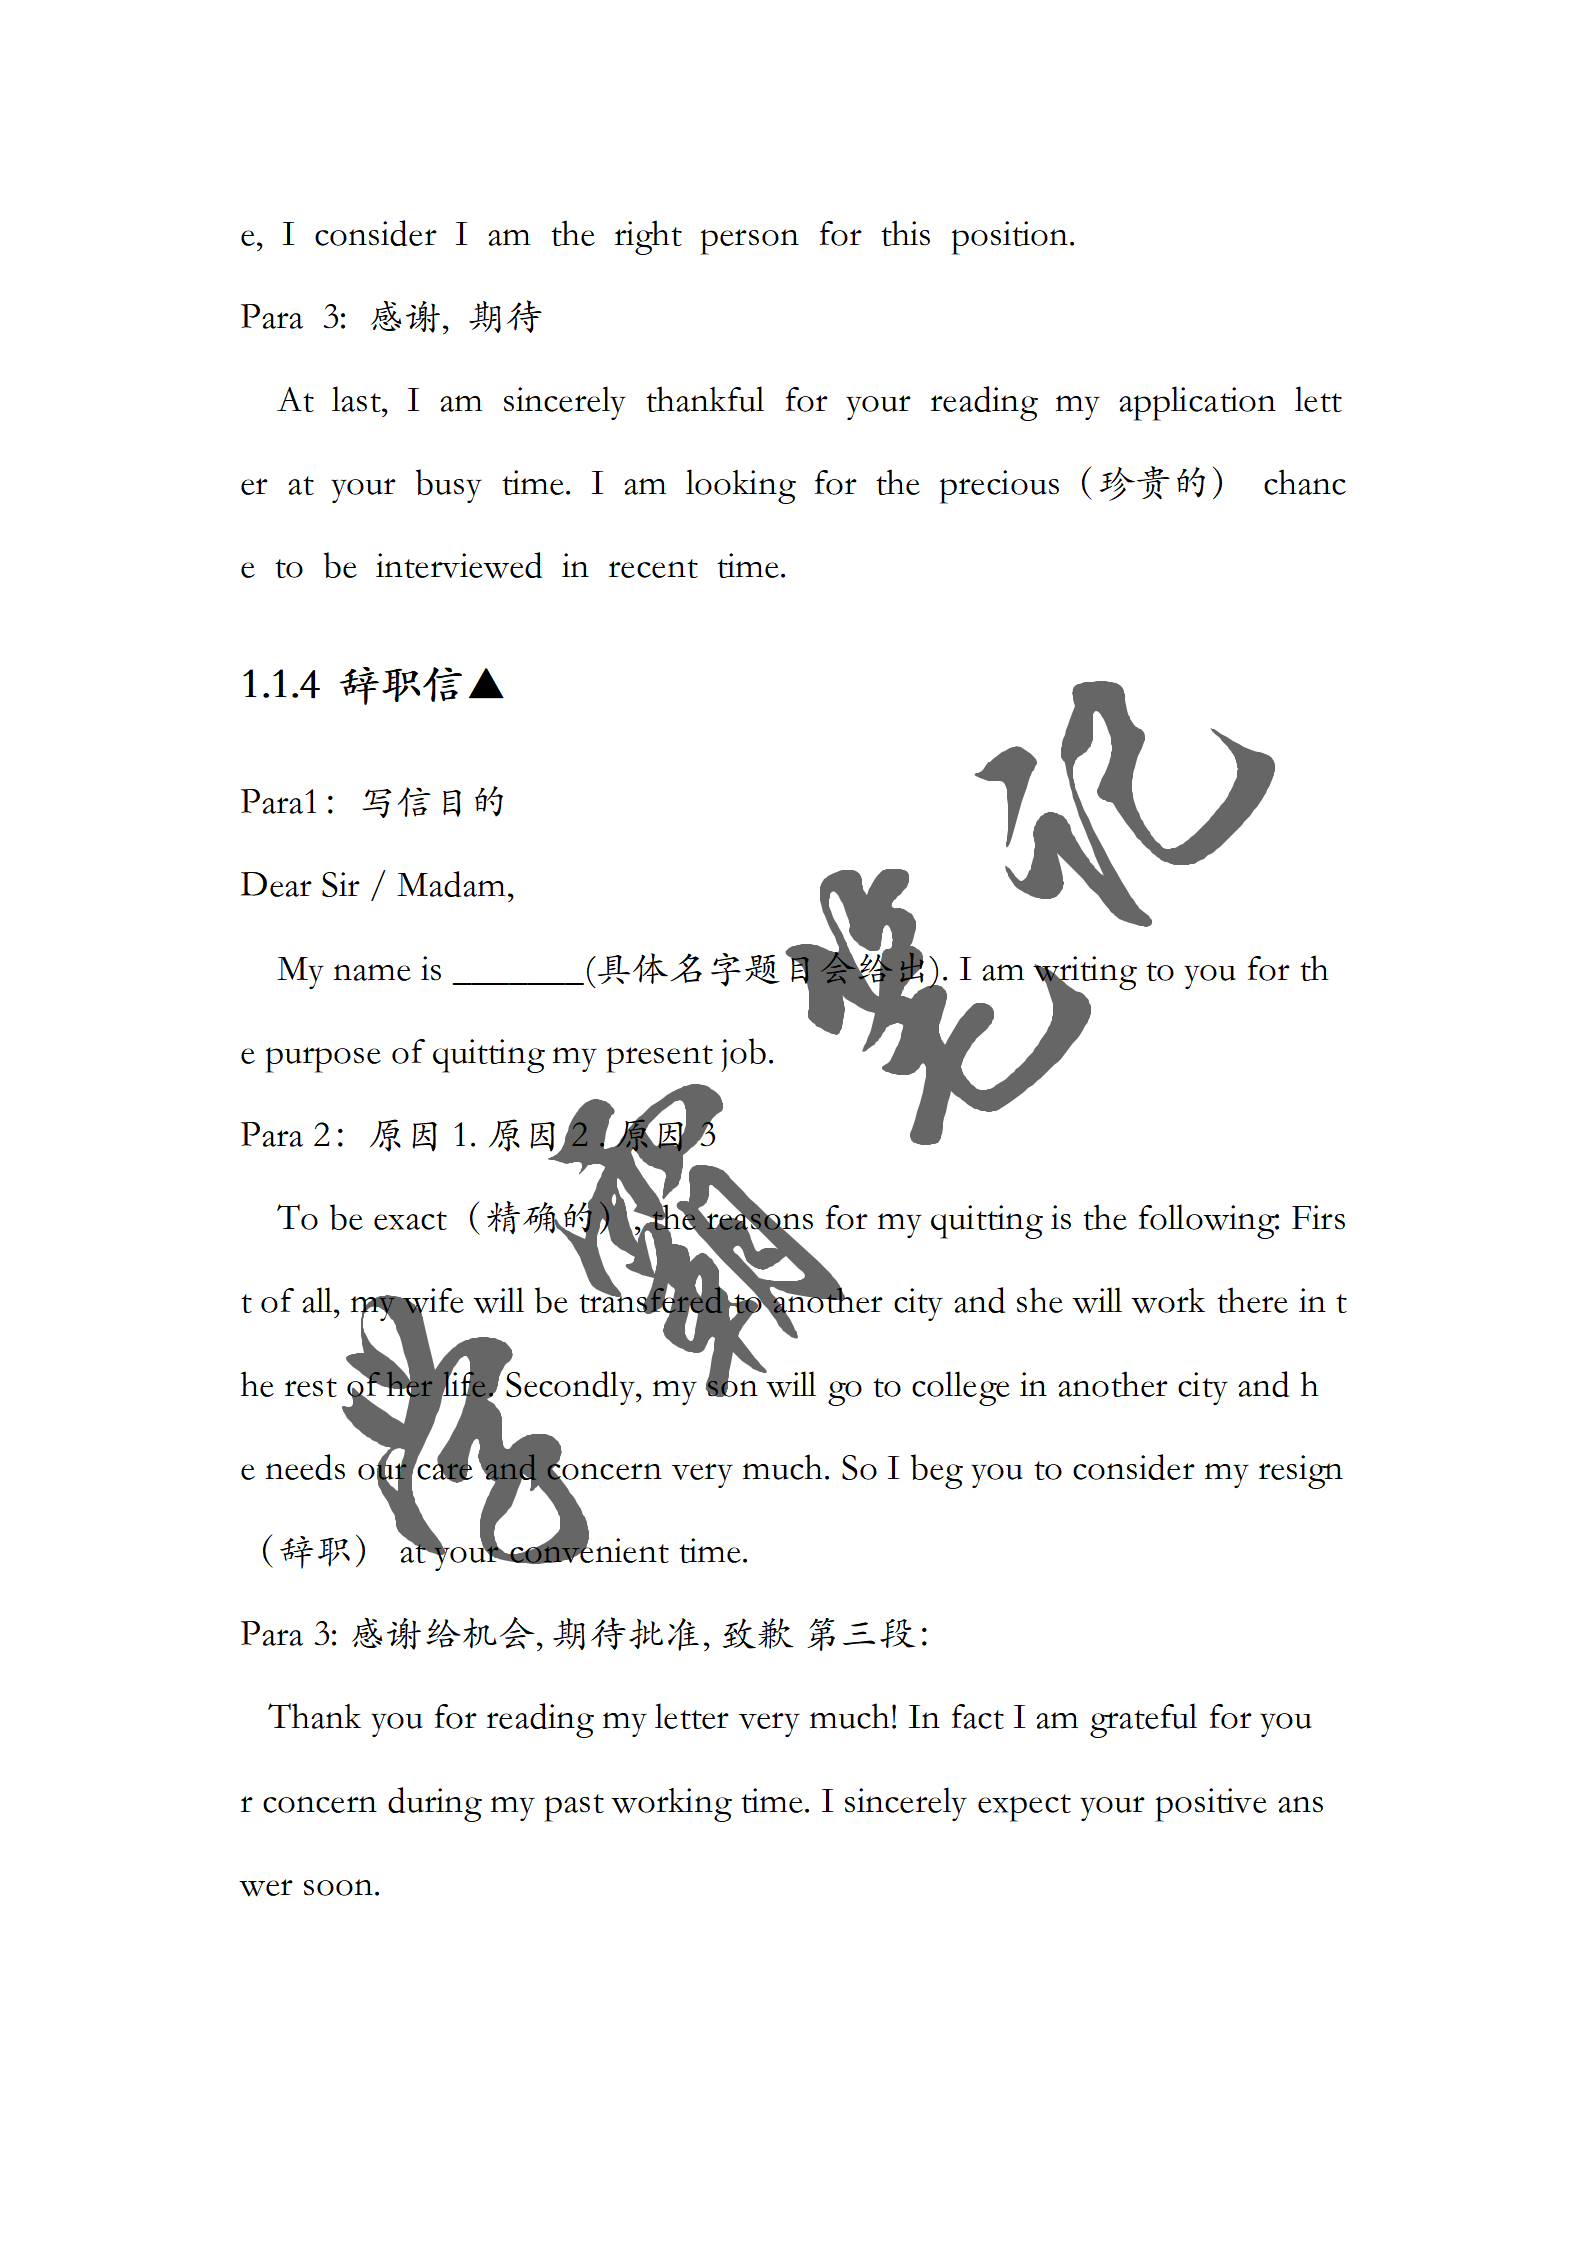 e, I consider I am the right person for this position.
Para 3: 感谢, 期待
At last, I am sincerely thankful for your reading my application lett
er at your busy time. I am looking for the precious（珍贵的） chanc
e to be interviewed in recent time.
1.1.4 辞职信▲
Para1：写信目的
Dear Sir / Madam,
My name is _______(具体名字题目会给出). I am writing to you for th
e purpose of quitting my present job.
Para 2：原因 1. 原因 2 . 原因 3
To be exact（精确的）, the reasons for my quitting is the following: Firs
t of all, my wife will be transfered to another city and she will work there in t
he rest of her life. Secondly, my son will go to college in another city and h
e needs our care and concern very much. So I beg you to consider my resign
（辞职） at your convenient time.
Para 3: 感谢给机会, 期待批准, 致歉 第三段：
Thank you for reading my letter very much! In fact I am grateful for you
r concern during my past working time. I sincerely expect your positive ans
wer soon.
学霸笔记